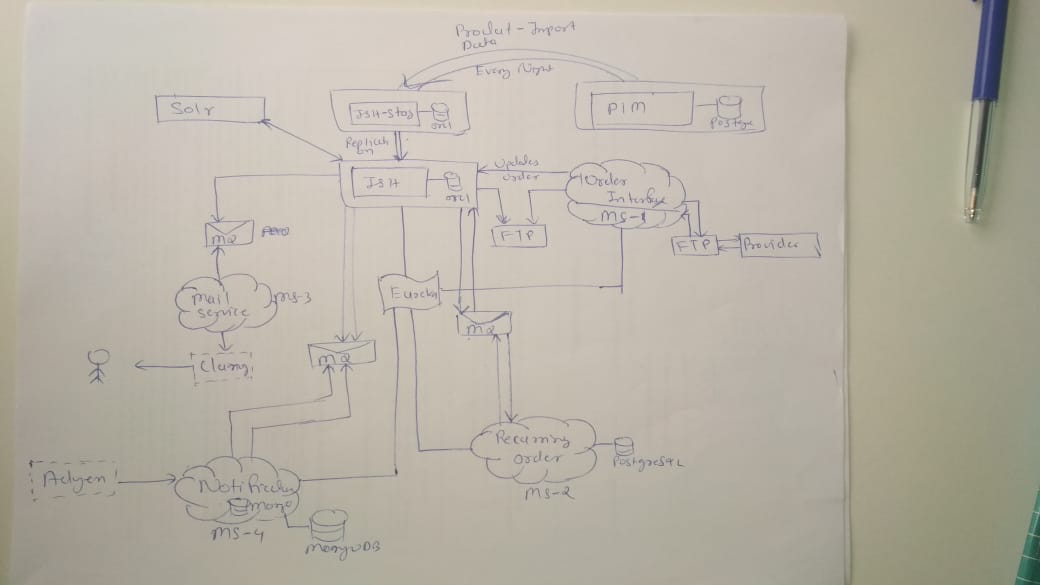 Product-Import
Data
Every Night
Solr
ISH-Stag
orcl
PIM
Postgre
ISH
orcl
Updates
order
Order
Interface
MS-1
FTP
FTP
Provider
MQ
Mail
service
MS-3
Eureka
MQ
MQ
Clang
Recurring
order
MS-2
PostgreSQL
Adyen
Mongo
MS-4
MongoDB